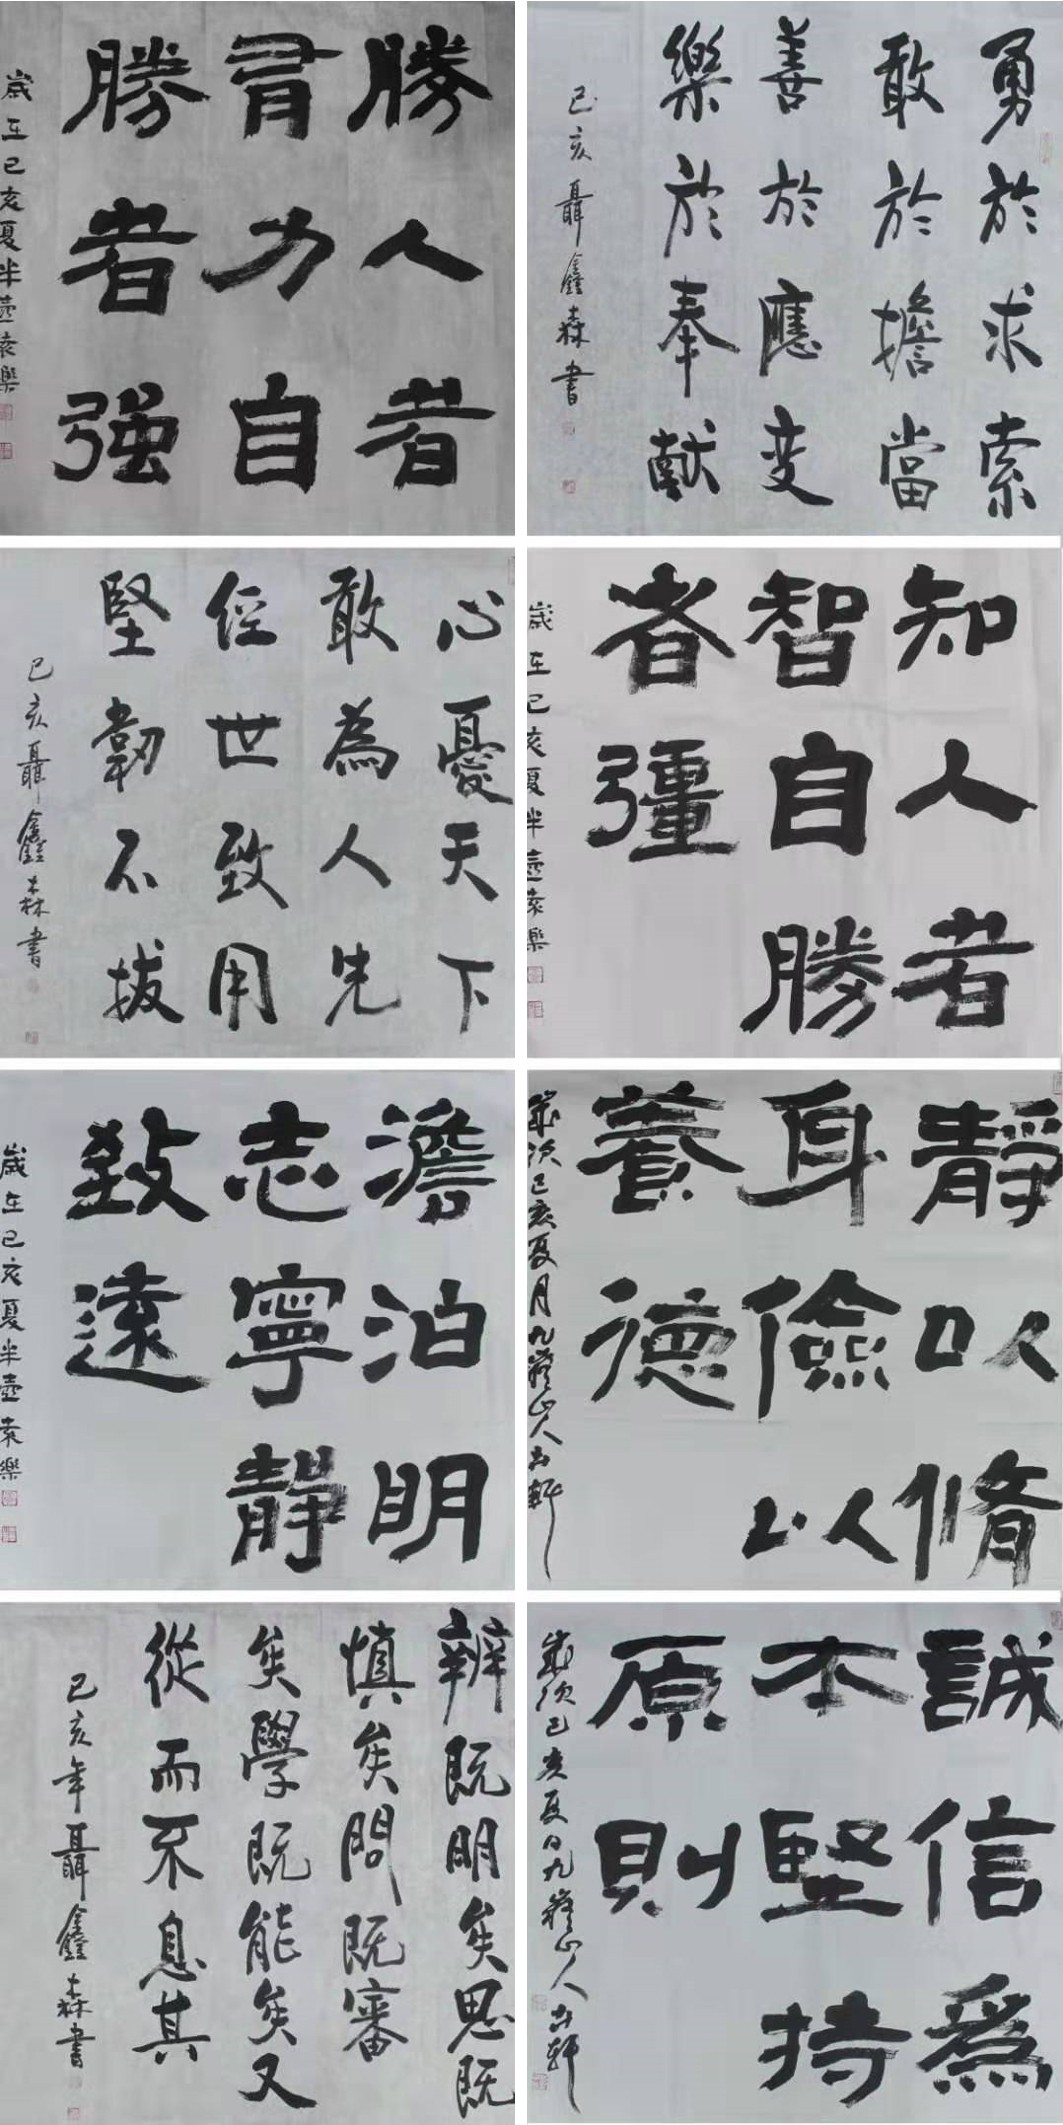 勝人者
有力自
勝者强
歲在己亥夏半壺袁樂
勇於求索
敢於擔當
善於應变
樂於奉獻
己亥聶鑫森書
心憂天下
敢為人先
経世致用
堅韌不拔
己亥聶鑫森書
知人者
智自勝
者彊
歲在己亥夏半壺袁樂
澹泊明
志寧靜
致遠
歲在己亥夏半壺袁樂
靜以脩
身儉以
養德
歲次己亥夏月九嶷山人
辨既明矣思既
慎矣問既審
矣學既能矣又
從而不息其
己亥年聶鑫森書
誠信爲
本堅持
原則
歲次己亥夏日九嶷山人